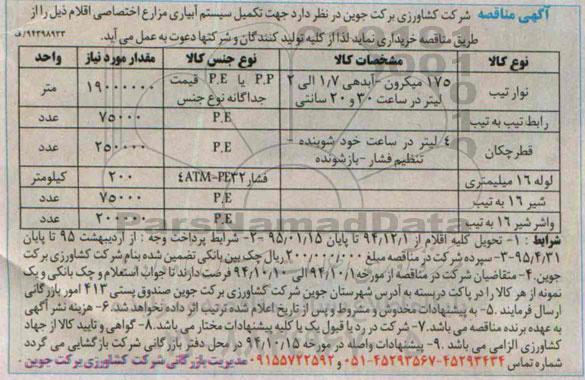 آگهی مناقصه شرکت کشاورزی برکت جوین در نظر دارد جهت تکمیل سیستم آبیاری مزارع اختصاصی اقلام ذیل را از
طریق مناقصه خریداری نماید لذا از کلیه تولید کنندگان و شرکتها دعوت به عمل می آید. ۹۴۳۹۸۹۲۳/ف
نوع کالا مشخصات کالا نوع جنس کالا مقدار مورد نیاز واحد
نوار تیپ ۱۷۵ میکرون -آبدهی ۱/۷ الی ۲ لیتر در ساعت ۳۰ و ۲۰ سانتی P.P یا P.E قیمت جداگانه نوع جنس ۱۹۰۰۰۰۰۰ متر
رابط تیپ به تیپ P.E ۷۵۰۰۰ عدد
قطر چکان ۴ لیتر در ساعت خود شوینده - تنظیم فشار -بازشونده P.E ۲۵۰۰۰۰ عدد
لوله ۱۶ میلیمتری فشار ۴ATM-PE۳۲ ۲۰۰ کیلومتر
شیر ۱۶ به تیپ P.E ۷۵۰۰۰ عدد
واشر شیر ۱۶ به تیپ P.E ۲۰۰۰۰۰ عدد
شرایط : ۱- تحویل کلیه اقلام از ۹۴،۱۲،۱ تا پایان ۹۵،۰۱،۱۵ ۲- شرایط پرداخت وجه : از اردیبهشت ۹۵ تا پایان
۹۵،۴،۳۱ ۳- سپرده شرکت در مناقصه مبلغ ۲۰۰،۰۰۰،۰۰۰ ریال چک بین بانکی تضمین شده بنام شرکت کشاورزی برکت
جوین. ۴- متقاضیان شرکت در مناقصه از مورخه ۹۴،۱۰،۱ الی ۹۴،۱۰،۱۰ فرصت دارند تا جواب استعلام و چک بانکی و یک
نمونه از هر کالا را در پاکت دربسته به آدرس شهرستان جوین شرکت کشاورزی برکت جوین صندوق پستی ۴۱۳ امور بازرگانی
ارسال فرمایند. ۵- به پیشنهادات مخدوش و مشروط و پس از تاریخ اعلام شده ترتیب اثر داده نخواهد شد. ۶- هزینه نشر آگهی
به عهده برنده مناقصه می باشد. ۷- شرکت در رد یا قبول یک یا کلیه پیشنهادات مختار می باشد. ۸- گواهی و تایید کالا از جهاد
کشاورزی الزامی می باشد. ۹- پیشنهادات واصله در مورخه ۹۴،۱۰،۱۵ در محل دفتر بازرگانی شرکت بازگشایی می گردد
شماره تماس ۴۵۲۹۳۴۳۴-۴۵۲۹۳۵۶۷-۰۵۱ و ۰۹۱۵۵۷۲۲۵۹۲ مدیریت بازرگانی شرکت کشاورزی برکت جوین
ParsNamadData